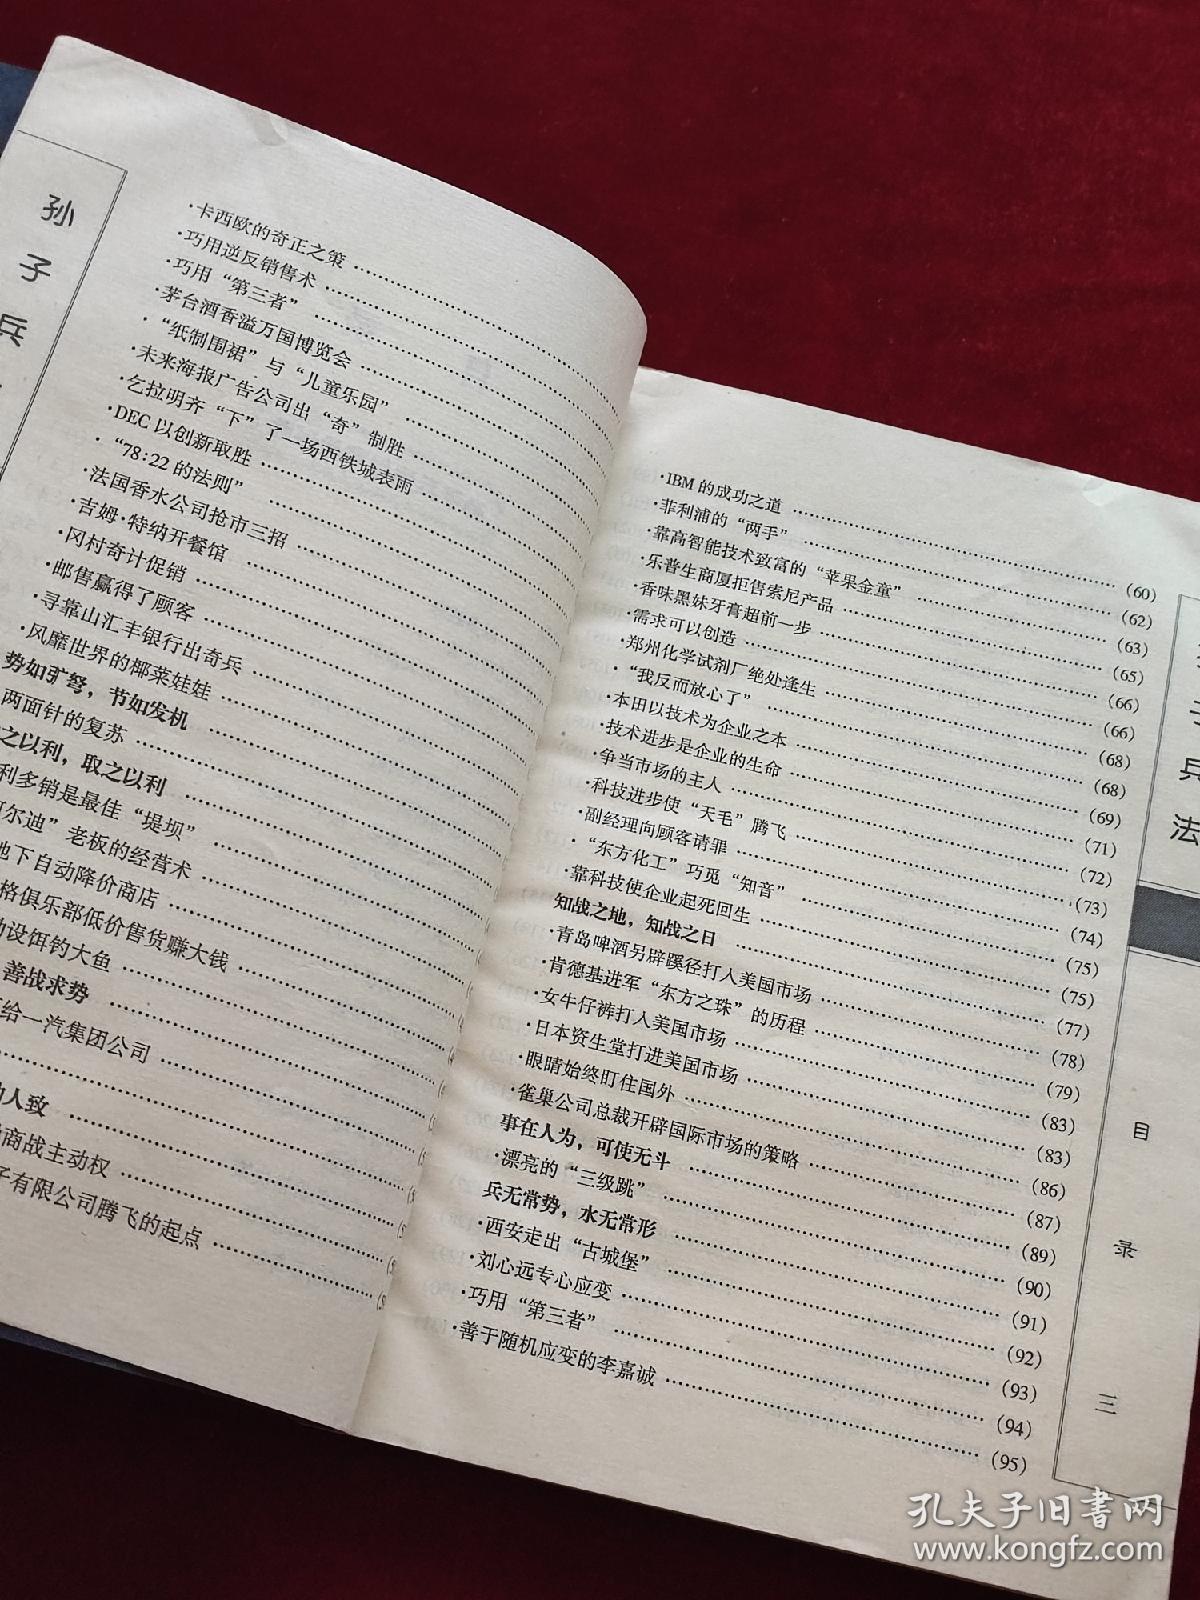 孙子兵
·卡西欧的奇正之策
·巧用逆反销售术
·巧用“第三者”
·茅台酒香溢万国博览会
·“纸制围裙”与“儿童乐园”
·未来海报广告公司出“奇”制胜
·乞拉明齐“下”了一场西铁城表雨
·DEC以创新取胜
·“78:22的法则”
·法国香水公司抢市三招
·吉姆·特纳开餐馆
·冈村奇计促销
·邮售赢得了顾客
·寻靠山汇丰银行出奇兵
·风靡世界的椰菜娃娃
势如彍弩，节如发机
两面针的复苏
之以利，取之以利
利多销是最佳“堤坝”
尔迪”老板的经营术
地下自动降价商店
格俱乐部低价售货赚大钱
设饵钓大鱼
善战求势
给一汽集团公司
人致
商战主动权
子有限公司腾飞的起点
·IBM的成功之道 (60)
·菲利浦的“两手” (62)
·靠高智能技术致富的“苹果金童” (63)
·乐普生商厦拒售索尼产品 (65)
·香味黑妹牙膏超前一步 (66)
·需求可以创造 (66)
·郑州化学试剂厂绝处逢生 (68)
·“我反而放心了” (68)
·本田以技术为企业之本 (69)
·技术进步是企业的生命 (71)
·争当市场的主人 (72)
·科技进步使“天毛”腾飞 (73)
·副经理向顾客请罪 (74)
·“东方化工”巧觅“知音” (75)
·靠科技使企业起死回生 (75)
知战之地，知战之日 (77)
·青岛啤酒另辟蹊径打入美国市场 (78)
·肯德基进军“东方之珠”的历程 (79)
·女牛仔裤打入美国市场 (83)
·日本资生堂打进美国市场 (83)
·眼睛始终盯住国外 (86)
·雀巢公司总裁开辟国际市场的策略 (87)
事在人为，可使无斗 (89)
·漂亮的“三级跳” (90)
兵无常势，水无常形 (91)
·西安走出“古城堡” (92)
·刘心远专心应变 (93)
·巧用“第三者” (94)
·善于随机应变的李嘉诚 (95)
子兵法
目录
三
孔夫子旧书网
www.kongfz.com